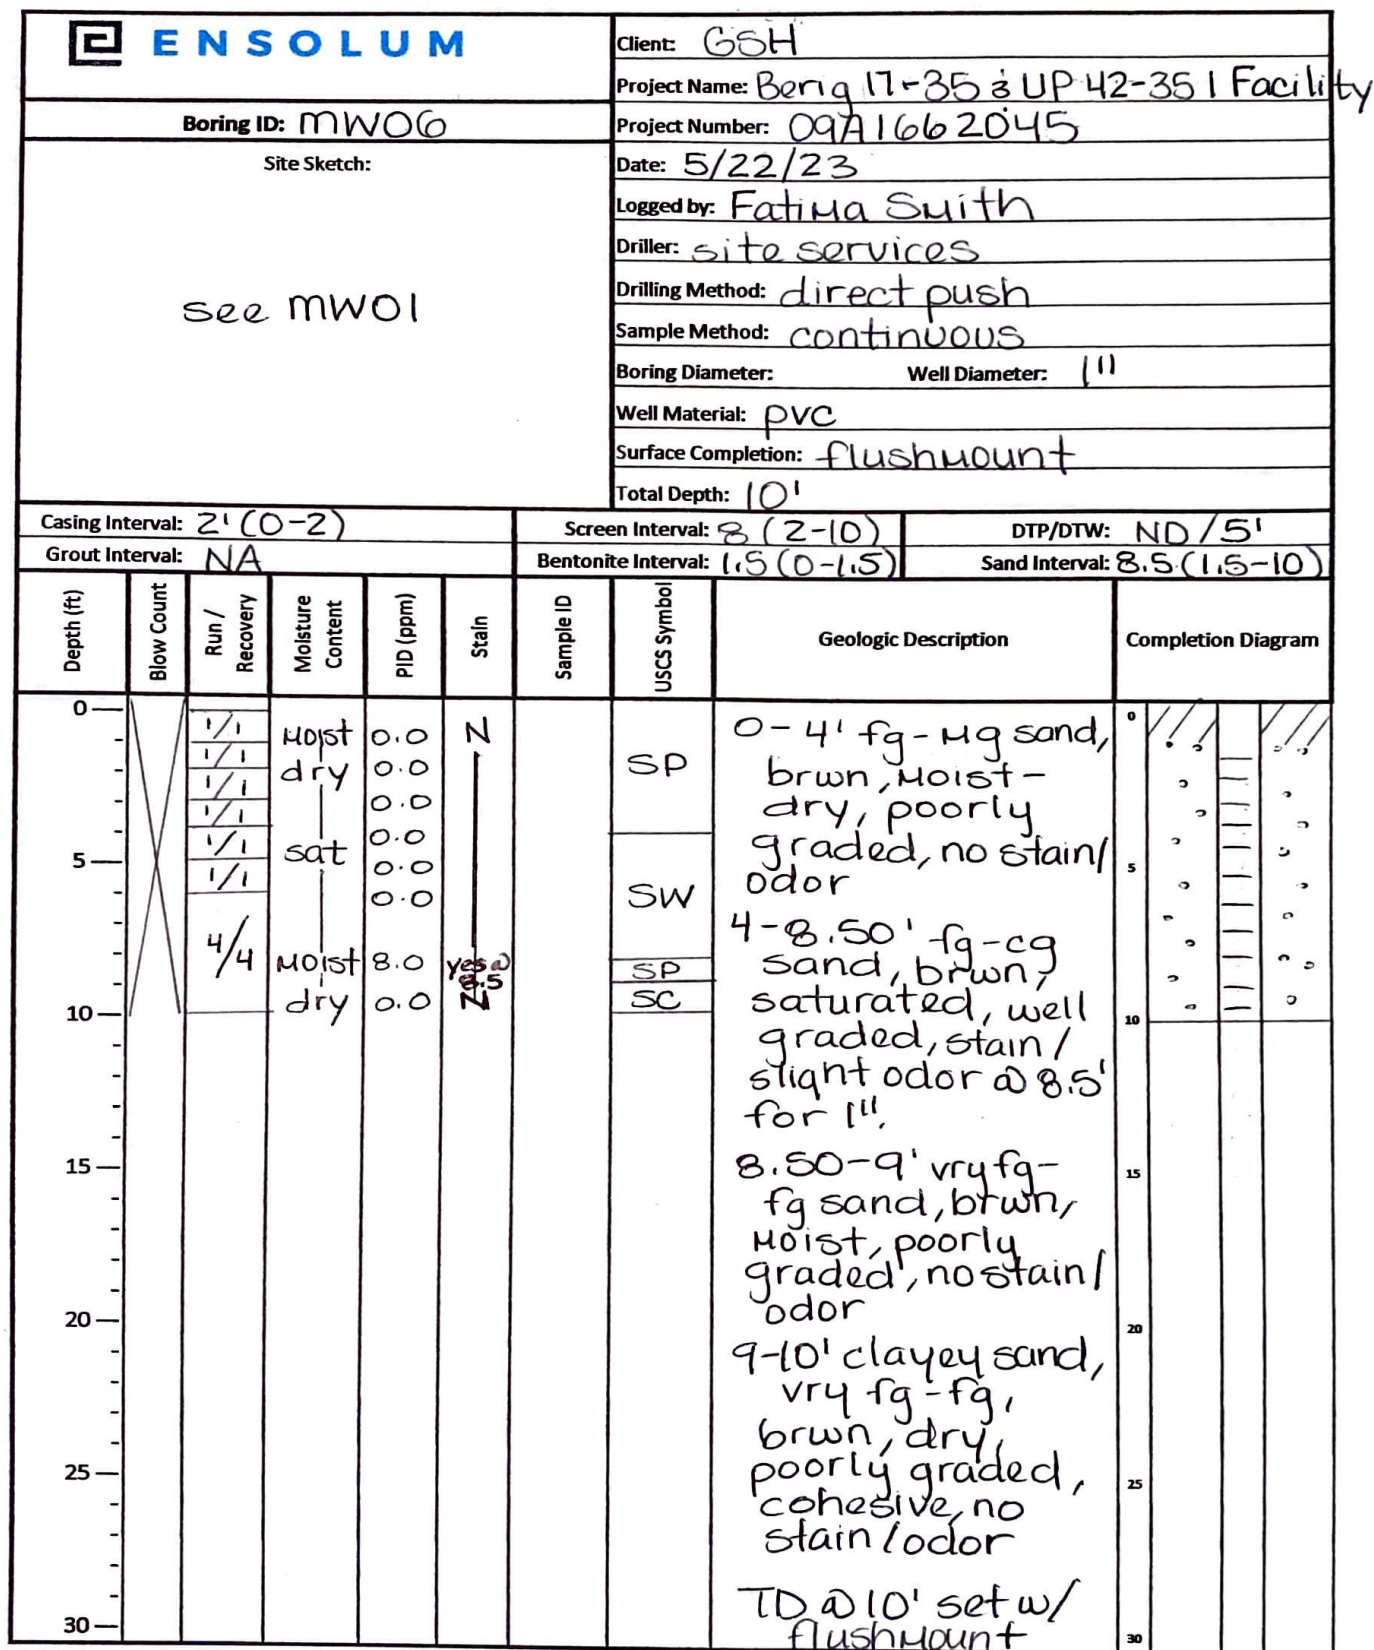 ENSOLUM
Client: GSH
Project Name: Berig 17-35 & UP 42-35 1 Facility
Boring ID: MW06
Project Number: 09A1662045
Site Sketch:
Date: 5/22/23
Logged by: Fatima Smith
Driller: site services
see MW01
Drilling Method: direct push
Sample Method: continuous
Boring Diameter: Well Diameter: 1"
Well Material: pvc
Surface Completion: flushmount
Total Depth: 10'
Casing Interval: 2' (0-2) Screen Interval: 8 (2-10) DTP/DTW: ND/5'
Grout Interval: NA Bentonite Interval: 1.5 (0-1.5) Sand Interval: 8.5 (1.5-10)
Depth (ft)
Blow Count
Run / Recovery
Moisture Content
PID (ppm)
Stain
Sample ID
USCS Symbol
Geologic Description
Completion Diagram
0
5
10
15
20
25
30
1/1
1/1
1/1
1/1
1/1
1/1
4/4
moist
dry
sat
moist
dry
0.0
0.0
0.0
0.0
0.0
0.0
8.0
0.0
N
yes @
8.5
N
SP
SW
SP
SC
0-4' fg-mg sand,
brwn, moist-
dry, poorly
graded, no stain/
odor
4-8.50' fg-cg
sand, brwn,
saturated, well
graded, stain/
slight odor @ 8.5'
for 1".
8.50-9' vry fg-
fg sand, brwn,
moist, poorly
graded, no stain/
odor
9-10' clayey sand,
vry fg-fg,
brwn, dry,
poorly graded,
cohesive, no
stain/odor
TD @ 10' set w/
flushmount
0
5
10
15
20
25
30